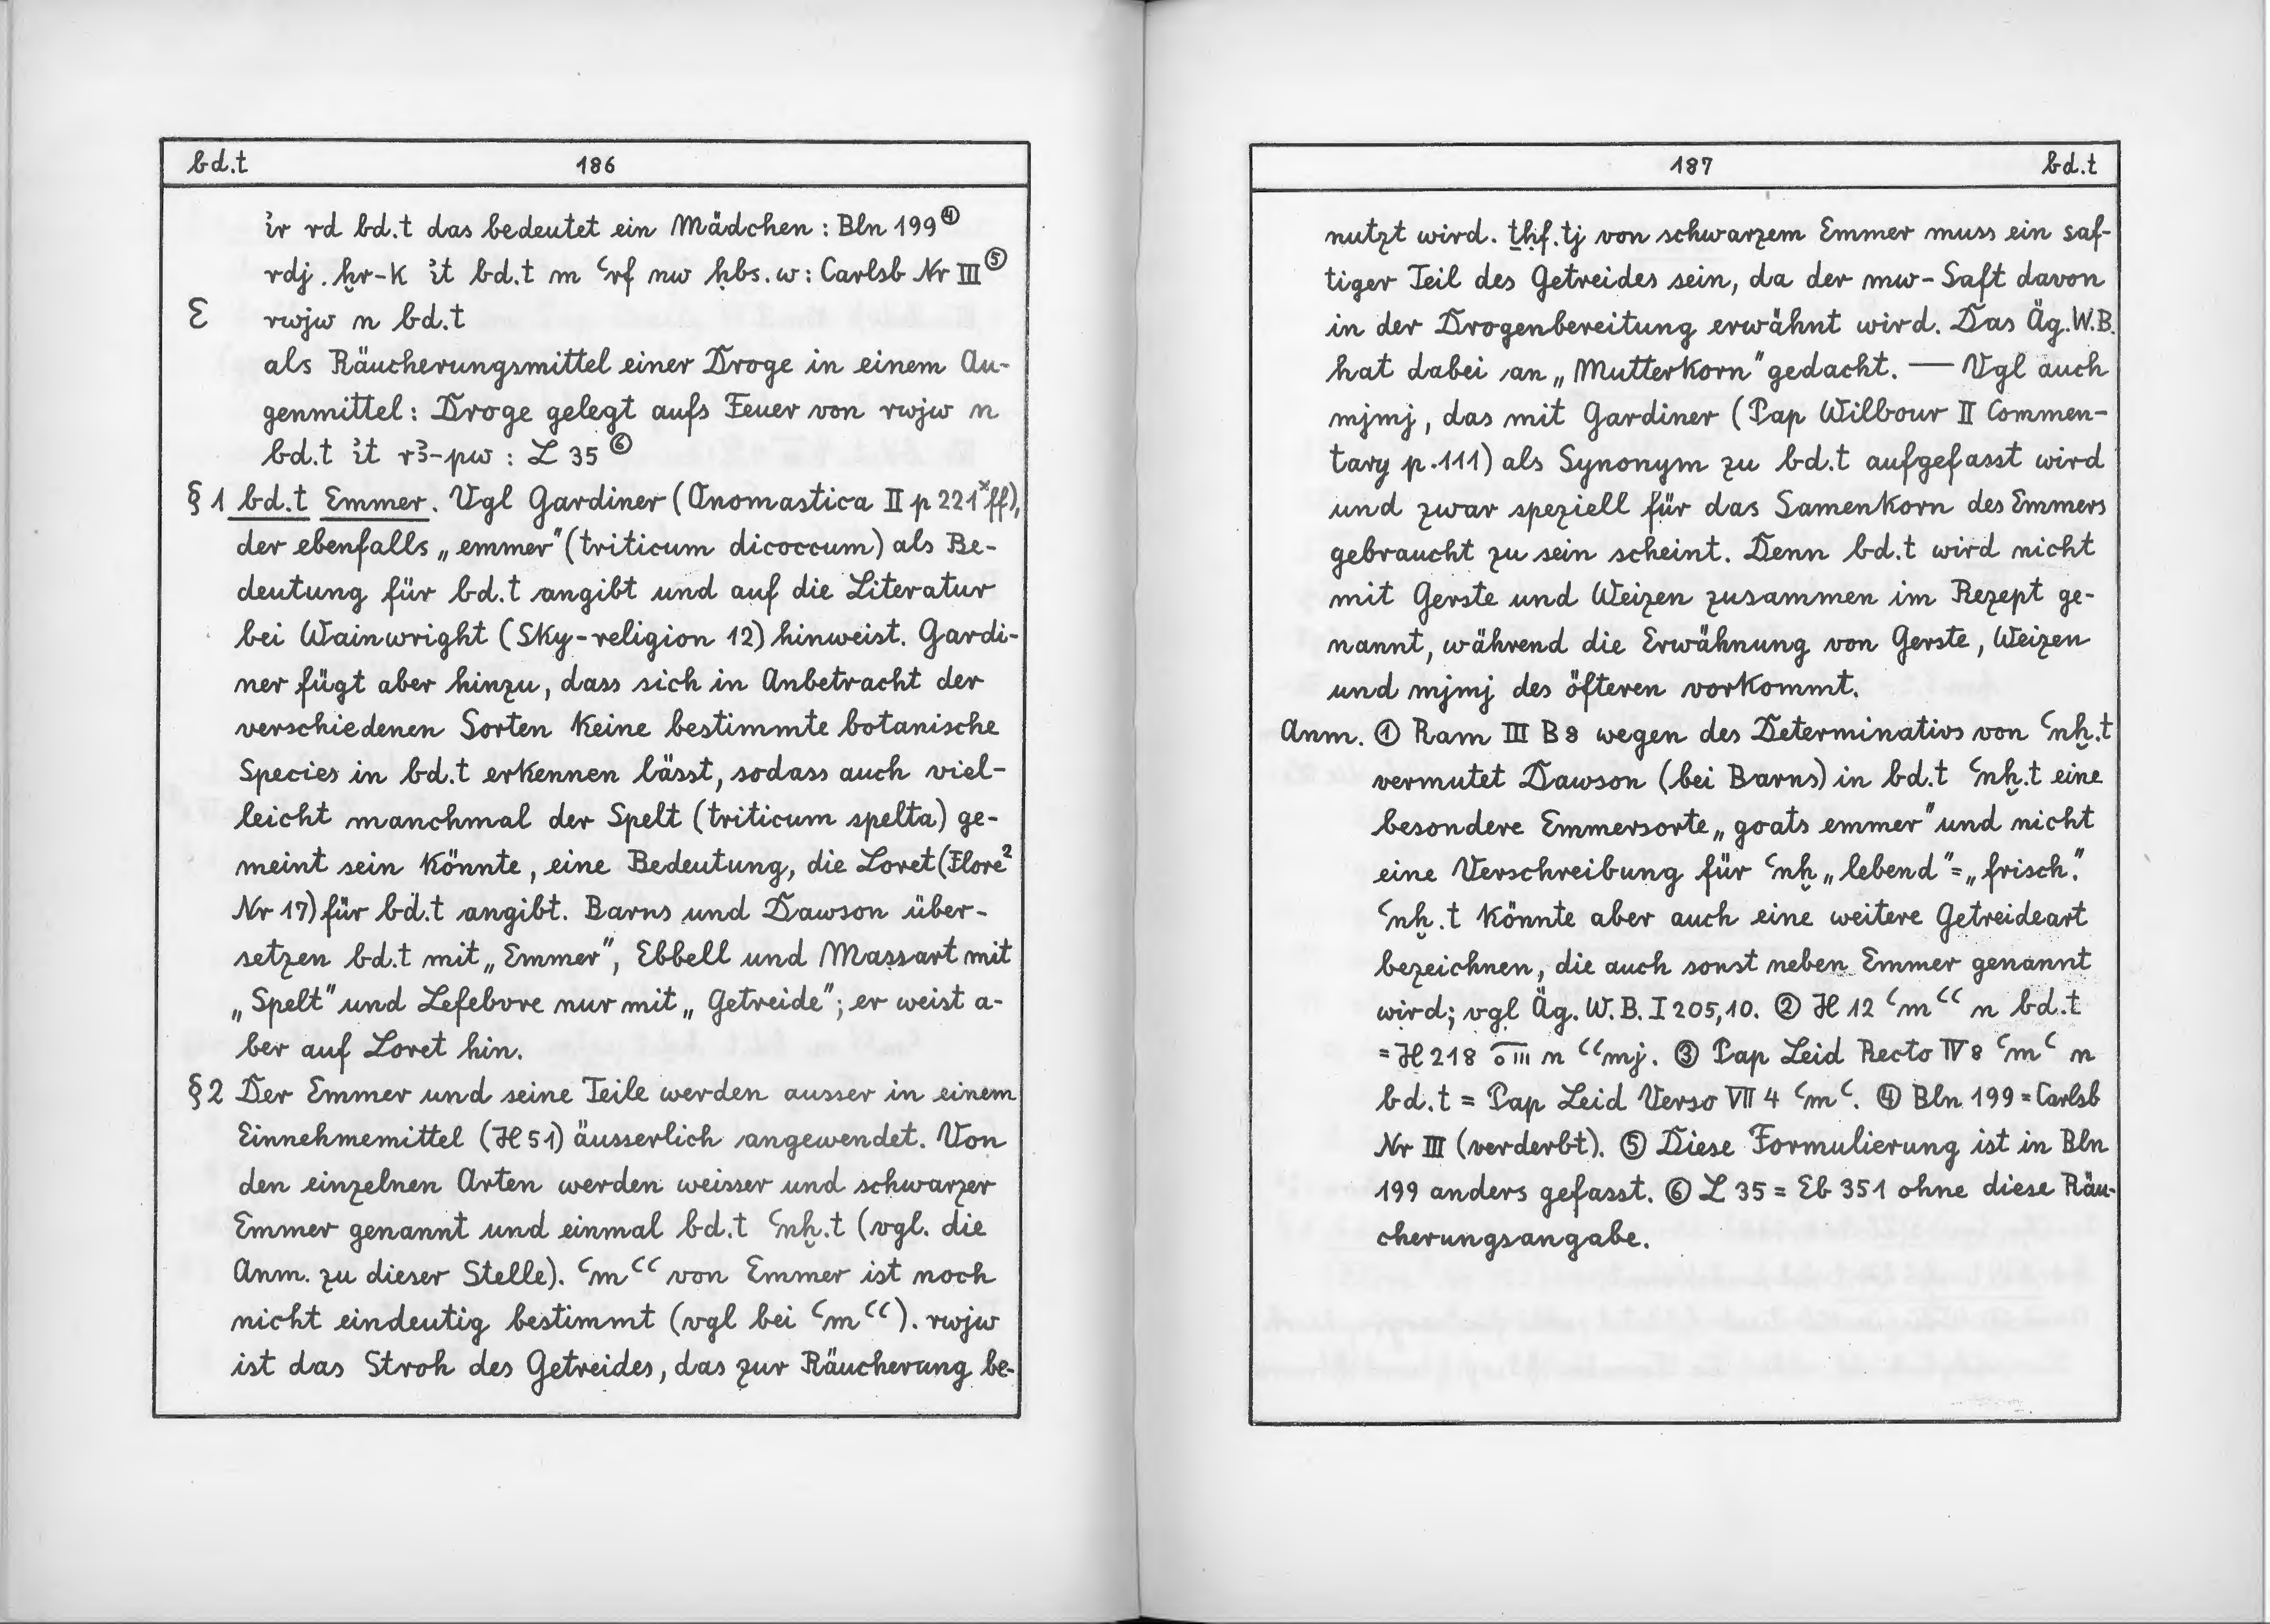 bd.t 186
ı͗r rd bd.t das bedeutet ein Mädchen : Bln 199④
rdj.ḫr-k ı͗t bd.t m ʿrf nw ḥbs.w : Carlsb Nr III⑤
E rwjw n bd.t
als Räucherungsmittel einer Droge in einem Au-
genmittel : Droge gelegt aufs Feuer von rwjw n
bd.t ı͗t rꜣ-pw : L 35⑥
§ 1 bd.t Emmer. Vgl Gardiner (Onomastica II p 221ˣff),
der ebenfalls „emmer" (triticum dicoccum) als Be-
deutung für bd.t angibt und auf die Literatur
bei Wainwright (Sky-religion 12) hinweist. Gardi-
ner fügt aber hinzu, dass sich in Anbetracht der
verschiedenen Sorten keine bestimmte botanische
Species in bd.t erkennen lässt, sodass auch viel-
leicht manchmal der Spelt (triticum spelta) ge-
meint sein könnte, eine Bedeutung, die Loret (Flore²
Nr 17) für bd.t angibt. Barns und Dawson über-
setzen bd.t mit „Emmer", Ebbell und Massart mit
„Spelt" und Lefebvre nur mit „Getreide"; er weist a-
ber auf Loret hin.
§ 2 Der Emmer und seine Teile werden ausser in einem
Einnehmemittel (H 51) äusserlich angewendet. Von
den einzelnen Arten werden weisser und schwarzer
Emmer genannt und einmal bd.t ʿnḫ.t (vgl. die
Anm. zu dieser Stelle). ʿmʿʿ von Emmer ist noch
nicht eindeutig bestimmt (vgl bei ʿmʿʿ). rwjw
ist das Stroh des Getreides, das zur Räucherung be-
187 bd.t
nutzt wird. ṯḥf.tj von schwarzem Emmer muss ein saf-
tiger Teil des Getreides sein, da der mw-Saft davon
in der Drogenbereitung erwähnt wird. Das Äg.W.B.
hat dabei an „Mutterkorn" gedacht. — Vgl auch
mjmj, das mit Gardiner (Pap Wilbour II Commen-
tary p.111) als Synonym zu bd.t aufgefasst wird
und zwar speziell für das Samenkorn des Emmers
gebraucht zu sein scheint. Denn bd.t wird nicht
mit Gerste und Weizen zusammen im Rezept ge-
nannt, während die Erwähnung von Gerste, Weizen
und mjmj des öfteren vorkommt.
Anm. ① Ram III B 8 wegen des Determinativs von ʿnḫ.t
vermutet Dawson (bei Barns) in bd.t ʿnḫ.t eine
besondere Emmersorte „goats emmer" und nicht
eine Verschreibung für ʿnḫ „lebend" = „frisch".
ʿnḫ.t könnte aber auch eine weitere Getreideart
bezeichnen, die auch sonst neben Emmer genannt
wird; vgl Äg. W. B. I 205,10. ② H 12 ʿmʿʿ n bd.t
= H 218 n ʿʿmj. ③ Pap Leid Recto IV 8 ʿmʿ n
bd.t = Pap Leid Verso VII 4 ʿmʿ. ④ Bln 199 = Carlsb
Nr III (verderbt). ⑤ Diese Formulierung ist in Bln
199 anders gefasst. ⑥ L 35 = Eb 351 ohne diese Räu-
cherungsangabe.